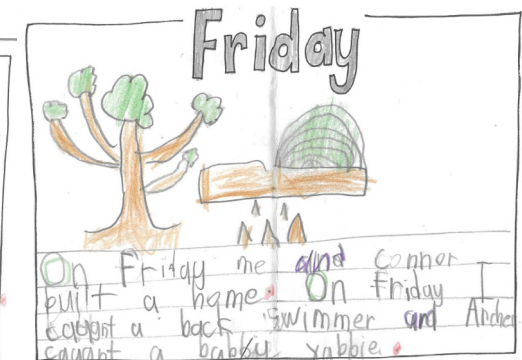 Friday
On Friday me and connor
built a home. On Friday I
caught a back swimmer and Archer
caught a babby yabbie.